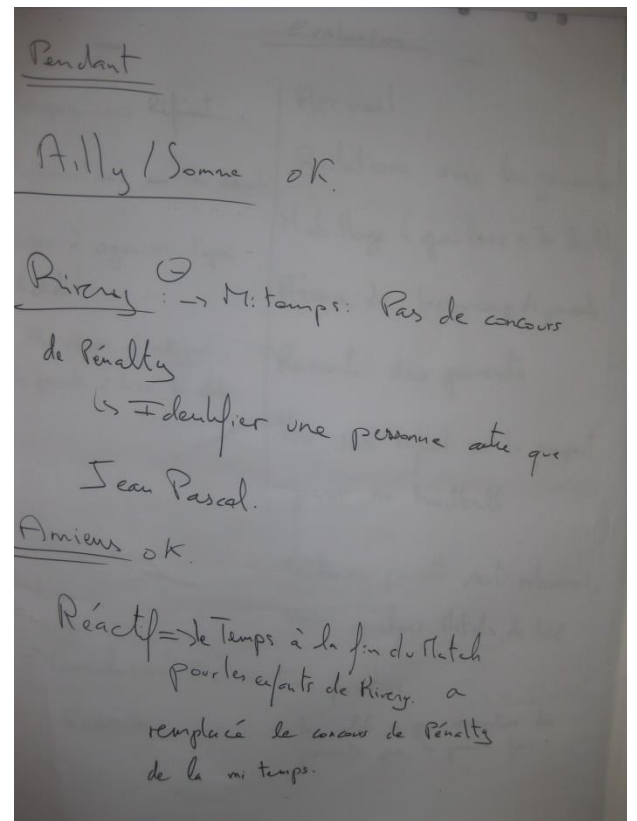 Pendant
Ailly / Somme OK.
Rivery ⊖ : → Mi temps : Pas de concours
de Pénalty
↳ Identifier une personne autre que
Jean Pascal.
Amiens OK.
Réactif => le Temps à la fin du Match
pour les enfants de Rivery. a
remplacé le concours de Pénalty
de la mi temps.